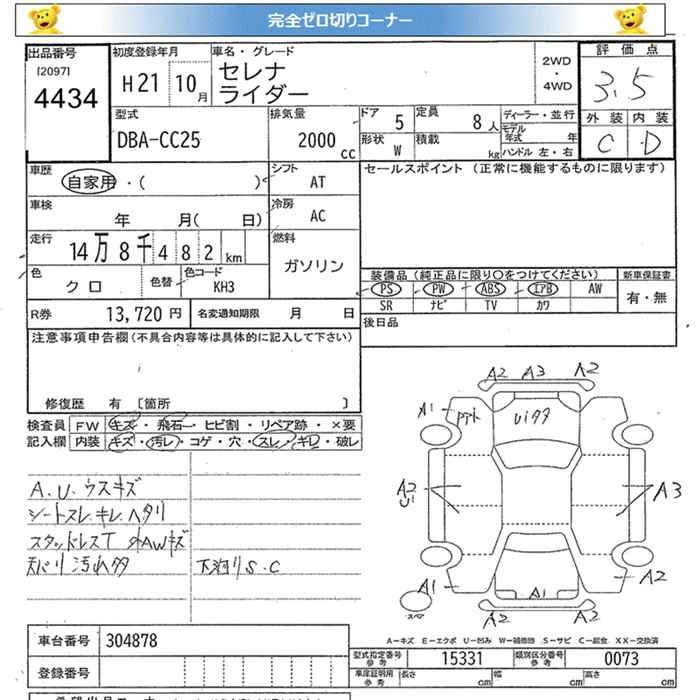 完全ゼロ切りコーナー
出品番号 初度登録年月 車名・グレード 評価点
[2097] 4434 H21 10月 セレナ ライダー 2WD・4WD 3.5
型式 排気量 ドア 定員 ディーラー・並行 外装 内装
DBA-CC25 2000cc 5 8人 モデル年式 年 C D
形状 W 積載 kg ハンドル 左・右
車歴 自家用・( ) シフト AT セールスポイント (正常に機能するものに限ります)
車検 年 月( 日) 冷房 AC
走行 14万8千482km 燃料 ガソリン
色 クロ 色替 色コード KH3 装備品(純正品に限り○をつけてください) 新車保証書
PS PW ABS エアB AW 有・無
SR ナビ TV カワ
R券 13,720円 名変通知期限 月 日 後日品
注意事項申告欄(不具合内容等は具体的に記入して下さい)
修復歴 有 〔箇所 〕
検査員 FW キズ・飛石・ヒビ割・リペア跡・×要
記入欄 内装 キズ・汚レ・コゲ・穴・スレ・キレ・破レ
A2 A3 A2
A1 Uイタタ
A.U.ウスキズ
シートスレ.キレ.ヘタリ
スタッドレスT 外AWキズ
天バリ汚れタタ 下廻りS.C
A2 U1 A3
A1 A1 A2
スペア A2 A2
A―キズ. E―エクボ U―凹み W―補修跡 .S―サビ C―腐食. XX―交換済
車台番号 304878 型式指定番号参考 15331 類別区分番号参考 0073
登録番号 車庫証明用参考 長さ cm 幅 cm 高さ cm